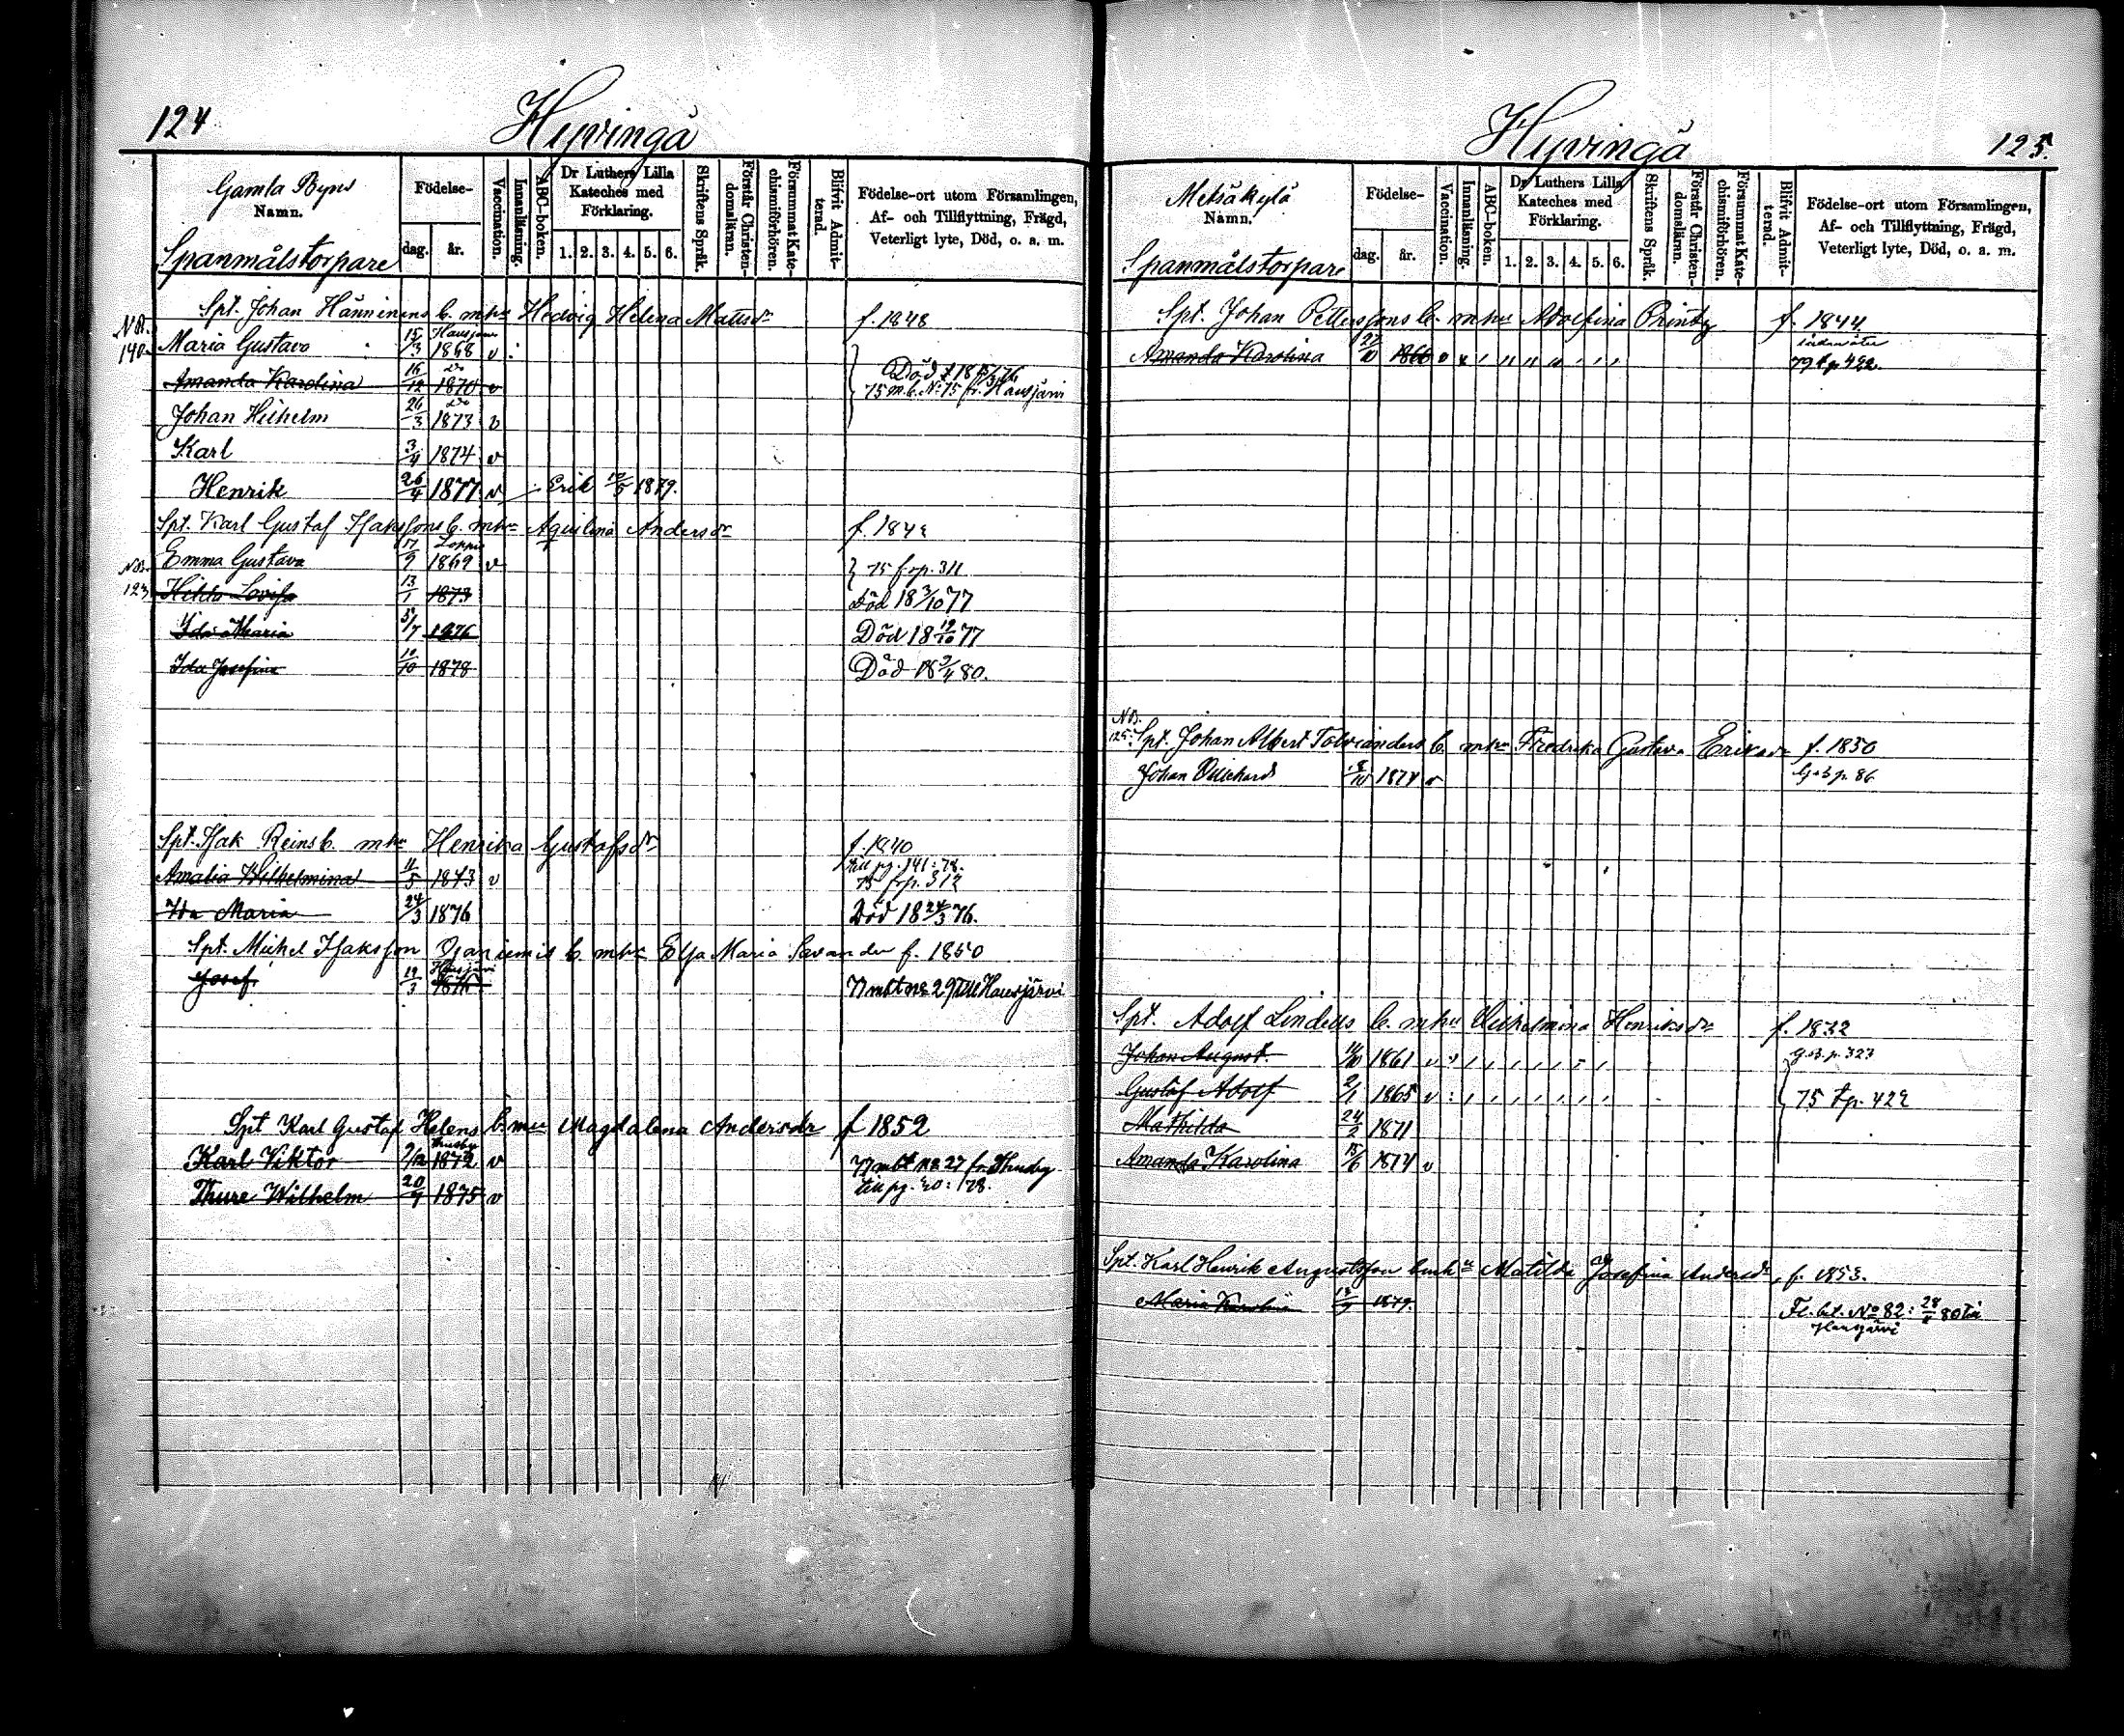 124
Hyvingä
Gamla Byns
Namn.
Spanmålstorpare
Födelse-
dag.
år.
Vaccination.
Innanläsning.
ABC-boken.
Dr Luthers Lilla
Kateches med
Förklaring.
1. 2. 3. 4. 5. 6.
Skriftens Språk.
Förstår Christen-
domsläran.
Försummat Kate-
chismiförhören.
Blifvit Admit-
terad.
Födelse-ort utom Församlingen,
Af- och Tillflyttning, Frägd,
Veterligt lyte, Död, o. a. m.
Spt. Johan Hänninens b. m hu Hedvig Helena Mattsdr f. 1848
NB. 140. Maria Gustava 15/3 Hausjärvi 1868 v
Amanda Karolina 16/12 do 1870 v Död
75 m.b. No 75 fr. Hausjärvi
Johan Wilhelm 26/3 do 1873 v
Karl 3/4 1874 v
Henrik 26/4 1877 v Erik 10/5 1879.
Spt. Karl Gustaf Isakssons b. m hu Aqvilina Andersdr f. 184
Emma Gustava 17/9 Loppis 1869 v 75 frp. 311
NB. 123 Hilda Lovisa 13/1 1873 Död 18 3/10 77
Ida Maria 5/7 1876 Död 18 19/10 77
Ida Josefina 19/10 1878 Död 18 9/4 80.
Spt. Isak Reins b. m hu Henrika Gustafsdr f. 1840
till pg. 141: 78.
Amalia Wilhelmina 11/5 1873 v 75 frp. 312
Ida Maria 24/3 1876 Död 18 24/3 76.
Spt. Mickel Isaksson b. m hu Elsa Maria Savander f. 1850
Josef 19/3 Hausjärvi 1876 77 mbt No 29 till Hausjärvi
Spt Karl Gustaf Helens b. m hu Magdalena Andersdr f 1852
Karl Viktor 9/12 Thusby 1872 v 77 mbt No 27 fr. Thusby
Thure Wilhelm 20/9 1875 v till pg. 40: 78.
Hyvingä
125.
Metsäkylä
Namn.
Spanmålstorpare
Födelse-
dag.
år.
Vaccination.
Innanläsning.
ABC-boken.
Dr Luthers Lilla
Kateches med
Förklaring.
1. 2. 3. 4. 5. 6.
Skriftens Språk.
Förstår Christen-
domsläran.
Försummat Kate-
chismiförhören.
Blifvit Admit-
terad.
Födelse-ort utom Församlingen,
Af- och Tillflyttning, Frägd,
Veterligt lyte, Död, o. a. m.
Spt. Johan Petterssons b. m hu Adolfina Printz f. 1844
Amanda Karolina 22/10 1866 v 79 tp 422.
NB.
125. Spt. Johan Albert Tolvianders b. m hu Fredrika Gustava Eriksdr f. 1850
Johan Richard 18/10 1874 v p. 86
Spt. Adolf Lindells b. m hu Wilhelmina Henriksdr f. 1832
Johan August 1861 v p. 323
Gustaf Adolf 2/1 1865 v 75 tp. 422
Mathilda 24/2 1871
Amanda Karolina 15/6 1874 v
Spt. Karl Henrik Augustsson b m hu Matilda Josefina Andersdr, f. 1853.
Maria Karolina 1879. Fl. bt. No 82: 80 till
Hausjärvi